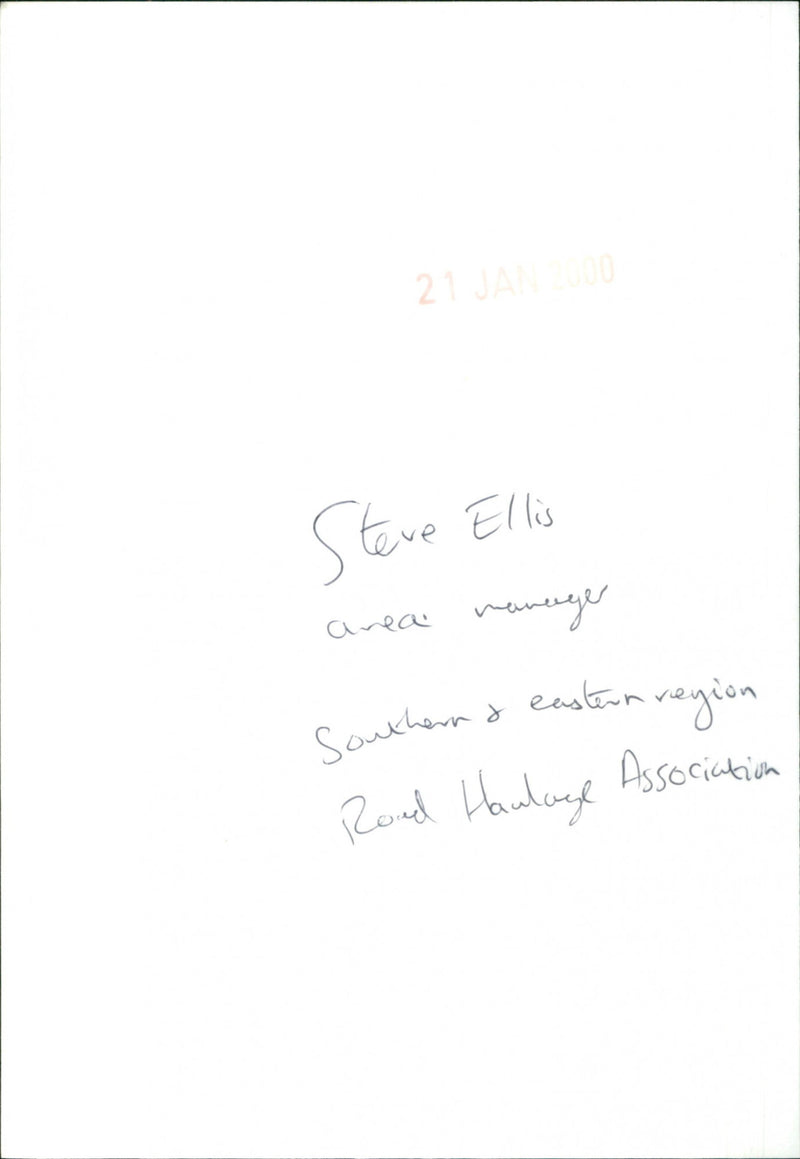 21 JAN 2000
Steve Ellis
area manager
Southern & eastern region
Road Haulage Association